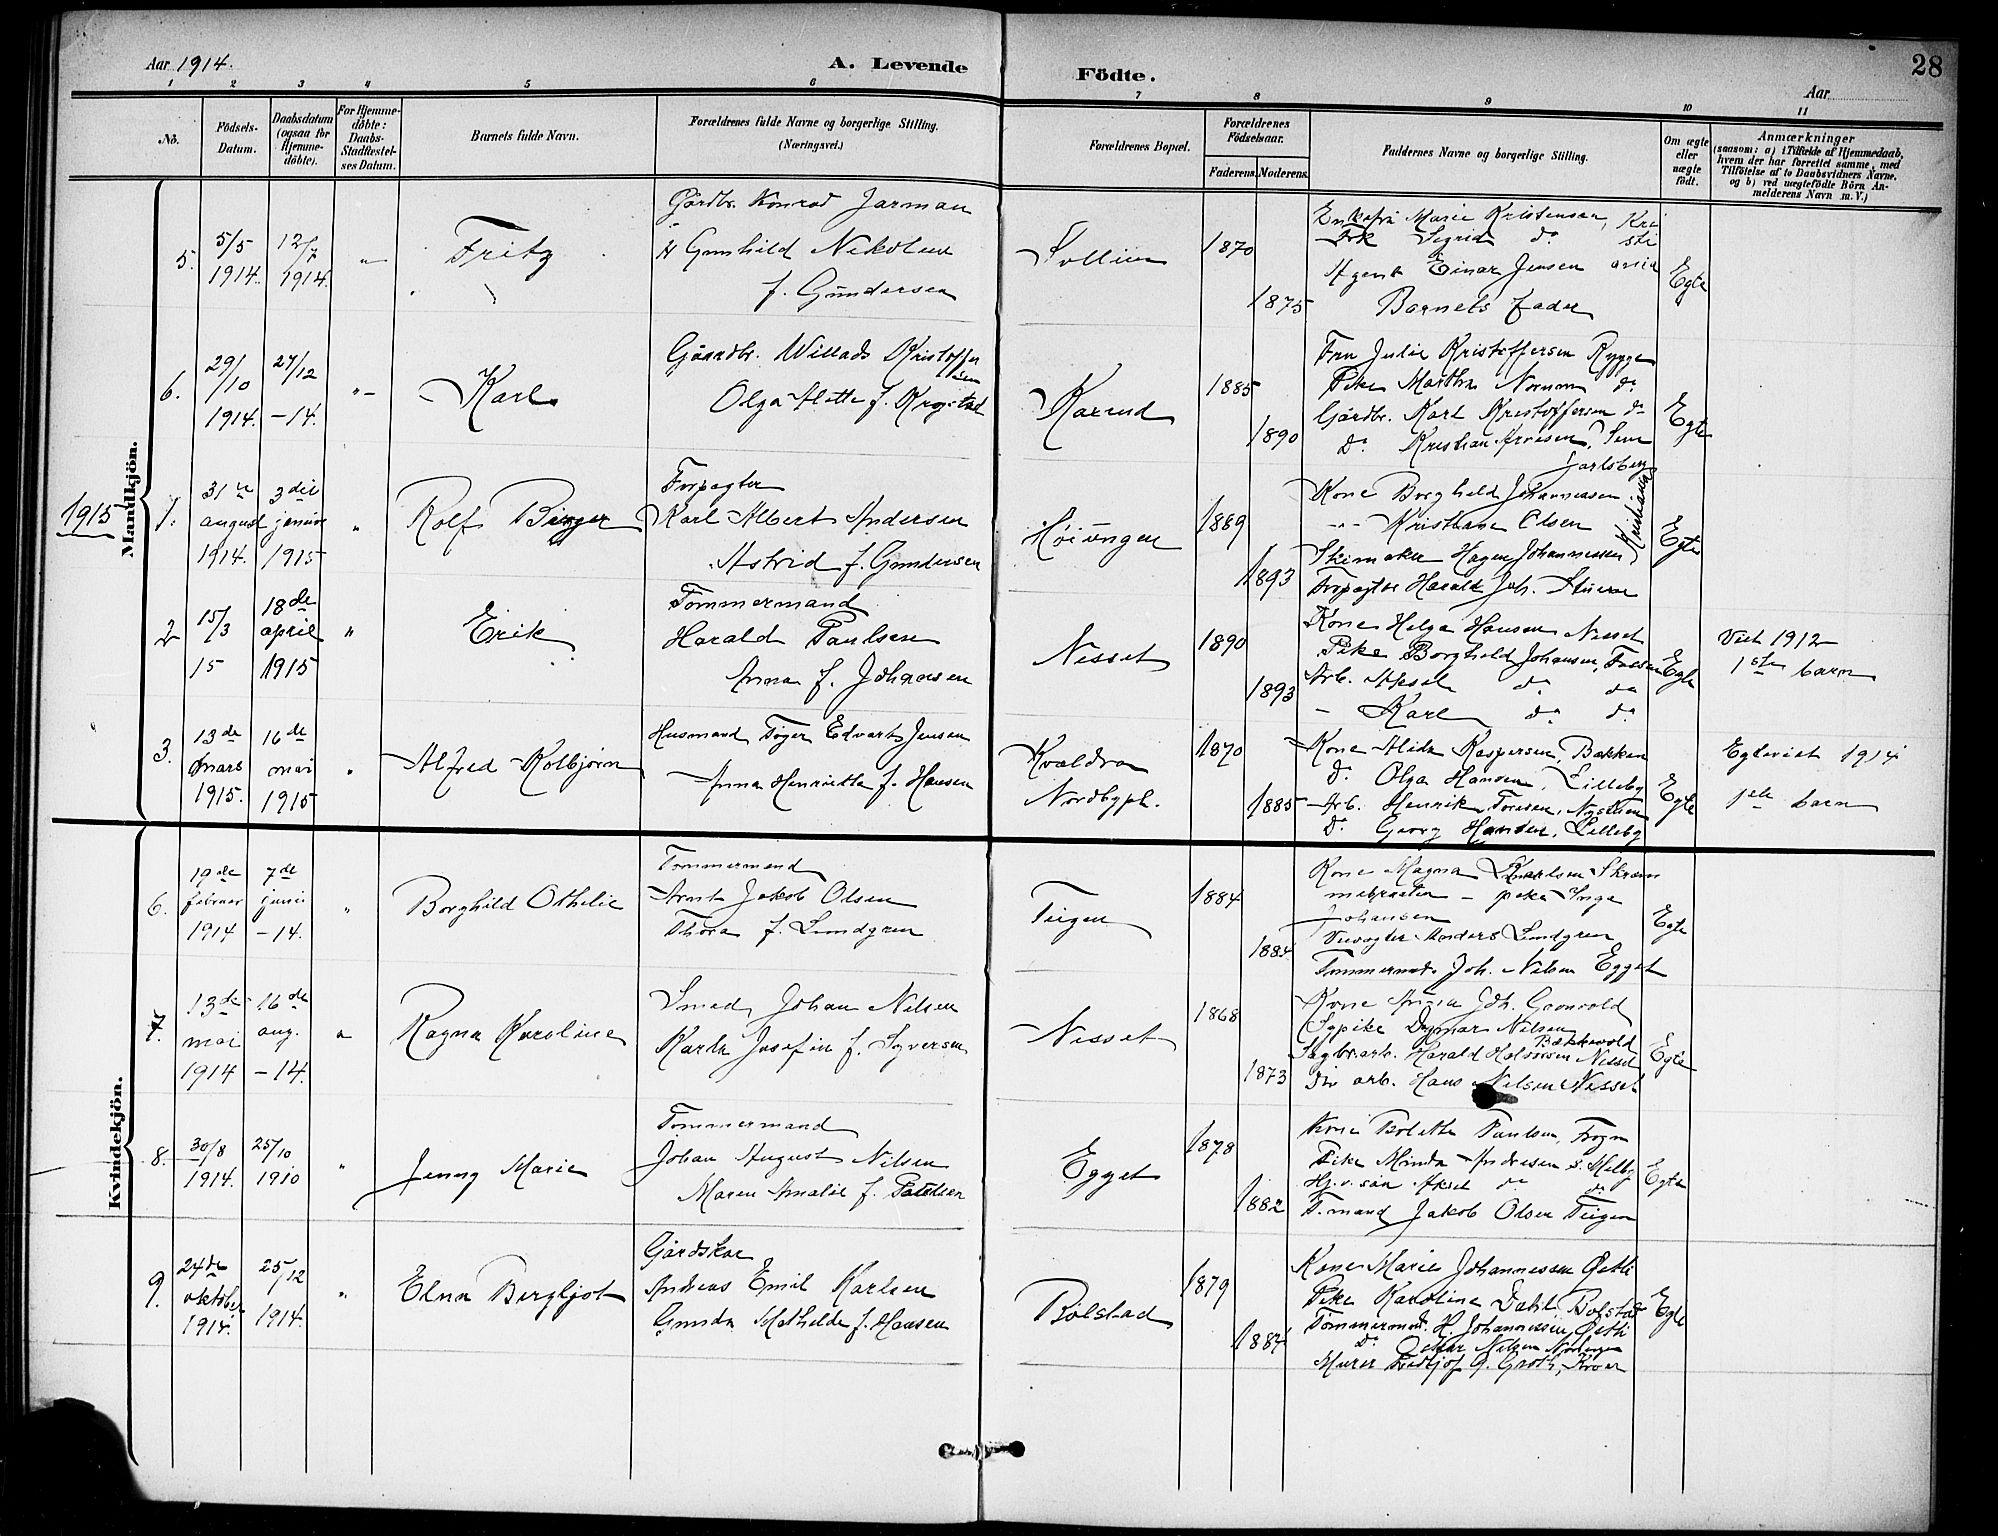 Aar 1914.
A. Levende Födte.
28
Aar
1 2 3 4 5 6 7 8 9 10 11
No.
Födsels-
Datum.
Daabsdatum
(ogsaa for
Hjemme-
döbte).
For Hjemme-
döbte:
Daabs-
Stadfestel-
ses Datum.
Barnets fulde Navn.
Forældrenes fulde Navne og borgerlige Stilling.
(Næringsvei.)
Forældrenes Bopæl.
Forældrenes
Födselsaar.
Faderens. Moderens.
Faddernes Navne og borgerlige Stilling.
Om ægte
eller
uægte
födt.
Anmærkninger
(saasom: a) i Tilfælde af Hjemmedaab,
hvem der har forrettet samme, med
Tilföielse af to Daabsvidners Navne,
og b) ved uægtefödte Börn An-
melderens Navn m. V.)
Mandkjön.
5.
5/5
1914.
12/7
1914.
"
Fritz
Gårdbr. Konrad Jarman
Gunhild Nikoline
f. Gundersen
Sollien
1870
1875
Enkefru Marie Kristensen, Kri
Frk Sigrid do sti
Agent Einar Jensen ania
Barnets fader
Egte
6.
29/10
1914.
27/12
-14.
"
Karl
Gaardbr. Willads Kristoffer
sen
Olga Alette f. Krogstad
Karud
1885
1890
Fru Julie Kristoffersen Rygge
Pike Martha Norum do
Gårdbr. Karl Kristoffersen do
do Kristian Arvesen, Sem
Jarlsberg
Egte
1915
1.
31te
august
1914.
3die
januar
1915
"
Rolf Birger
Forpagter
Karl Albert Andersen
Astrid f. Gundersen
Höiungen
1889
1893
Kone Borghild Johannessen
Kristiane Olsen
Kristiania
Skomaker Hagen Johannessen
Forpagter Harald Joh.
Egte
2
15/3
15
18de
april
1915
"
Erik
Tømmermand
Harald Paulsen
Anna f. Johansen
Nesset
1890
1893
Kone Helga Hansen Nesset
Pike Borghild Johansen,
Arb. Aksel do do
- Karl do do
Egte
Viet 1912
1ste barn
3.
13de
mars
1915.
16de
mai
1915
"
Alfred Kolbjörn
Husmand Töger Edvart Jensen
Anna Henriette f. Hansen
Kvaldran
Nordbypl.
1870
1885
Kone Alida Kaspersen, Bakken
do Olga Hansen, Lilleby
Arb. Henrik Toresen,
do Georg Hansen, Lilleby
Egte
Egteviet 1914
1ste barn
Kvindekjön.
6.
19de
februar
1914
7de
juni
-14.
"
Borghild Othelie
Tømmermand
Arnt Jakob Olsen
Thora f. Lundgren
Teigen
1884
1884
Kone Magna Karlsen Skram
mebraaten - pike Inga
Johansen
Anders Lundgren
Tømmermd. Joh. Nilsen Egget
Egte
7.
13de
mai
1914
16de
aug.
-14.
"
Ragna Karoline
Smed Johan Nilsen
Karen Josefine f. Syversen
Nesset
1868
1873
Kone Anna Joh. Grønvold
Sypike Dagmar Nilsen
Bækkevold
Sagbr.arb. Harald Halvorsen Nesset
Div arb. Hans Nilsen Nesset
Egte
8.
30/8
1914.
25/10
1910
"
Jenny Marie
Tømmermand
Johan August Nilsen
Maren Amalie f. Paulsen
Egget
1878
1882
Kone Bolette Paulsen, Frogn
Pike Minda Andresen s. Melby
Hj.v. søn Aksel do do
T.mand Jakob Olsen Teigen
Egte
9.
24de
oktober
1914.
25/12
1914.
"
Elna Bergljot
Gårdskar
Andreas Emil Karlsen
Gunda Mathilde f. Hansen
Bölstad
1879
1884
Kone Marie Johannessen Østli
Pike Karoline Dahl, Bolstad
Tømmermd. H. Johannessen Østli
do Oskar Nilsen
Murer Fridtjof G. Groth, Kroer
Egte